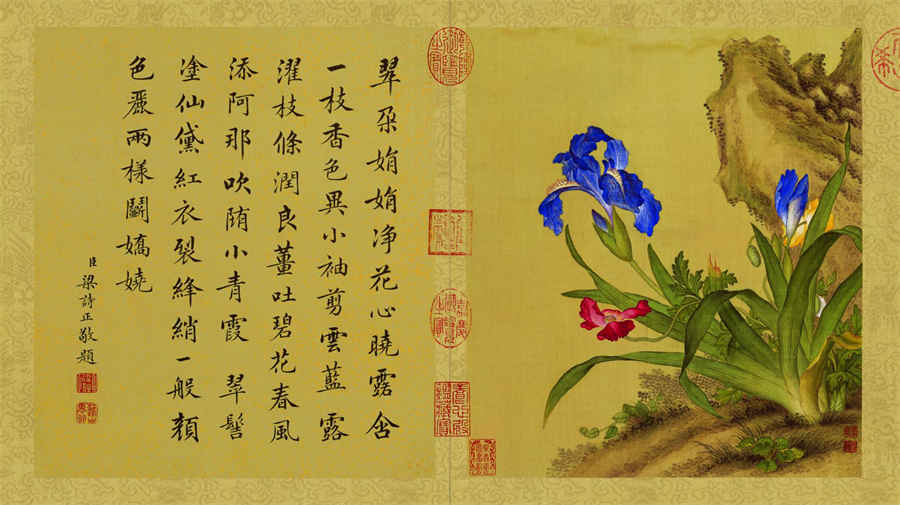 翠朶娟娟净花心曉露含
一枝香色異小袖剪雲藍露
濯枝條潤良薑吐碧花春風
添阿那吹墮小青霞 翠髻
塗仙黛紅衣裂絳綃一般顔
色麗兩樣鬭嬌嬈
臣梁詩正敬題